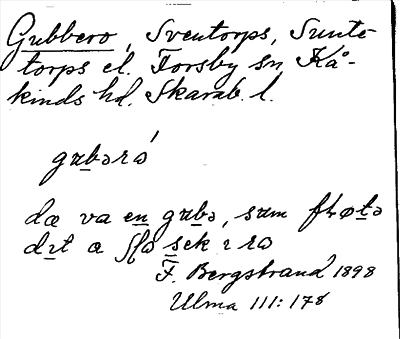 Gubbero, Sventorps, Sunte-
torps el. Forsby sn Kå-
kinds hd. Skarab. l.
gʉbərə́
dæ va en gʉbə, sum
dɪt æ sek ɪ rə
F. Bergstrand 1898
Ulma III: 178